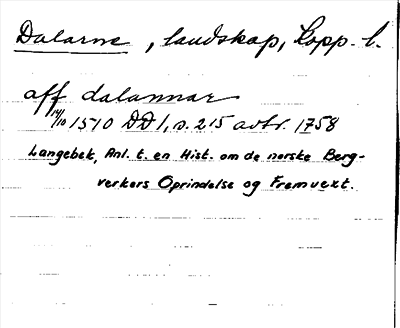 Dalarne, landskap, Kopp. l.
aff dalannar
14/10 1510 DD 1, s. 215 avtr. 1758
Langebek, Anl. t. en Hist. om de norske Berg-
verkers Oprindelse og Fremvext.